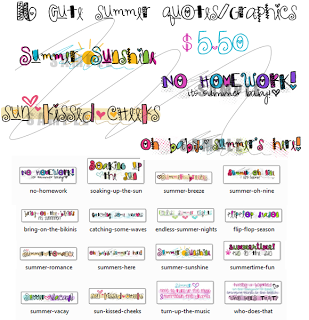 16 cute summer quotes/graphics
$5.50
Summer Sunshine
NO HOMEWORK!
it's summer baby!
sun kissed cheeks
Oh baby, summer's here!
NO HOMEWORK!
Soaking up
the sun
no-homework
soaking-up-the-sun
summer-breeze
summer-oh-nine
bring-on-the-bikinis
catching-some-waves
endless-summer-nights
flip-flop-season
summer-romance
summers-here
summer-sunshine
summertime-fun
summer-vacay
sun-kissed-cheeks
turn-up-the-music
who-does-that